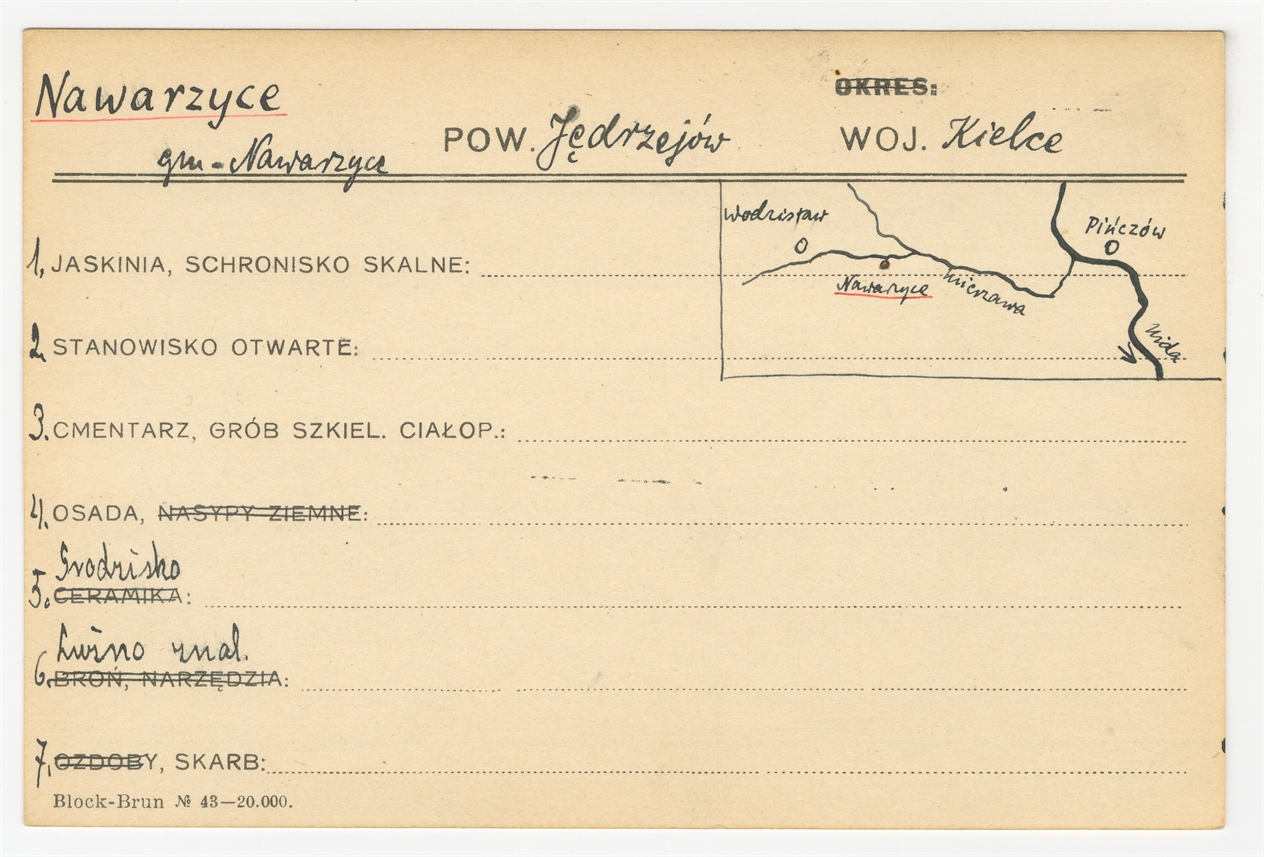 Nawarzyce
OKRES:
gm-Nawarzyce POW. Jędrzejów WOJ. Kielce
Wodzisław
Pińczów
Nawarzyce
Mierzawa
Nida
1, JASKINIA, SCHRONISKO SKALNE:
2, STANOWISKO OTWARTE:
3. CMENTARZ, GRÓB SZKIEL. CIAŁOP.:
4. OSADA, NASYPY ZIEMNE:
Grodzisko
5. CERAMIKA:
Luźno znal.
6. BROŃ, NARZĘDZIA:
7, OZDOBY, SKARB:
Block-Brun № 43—20.000.